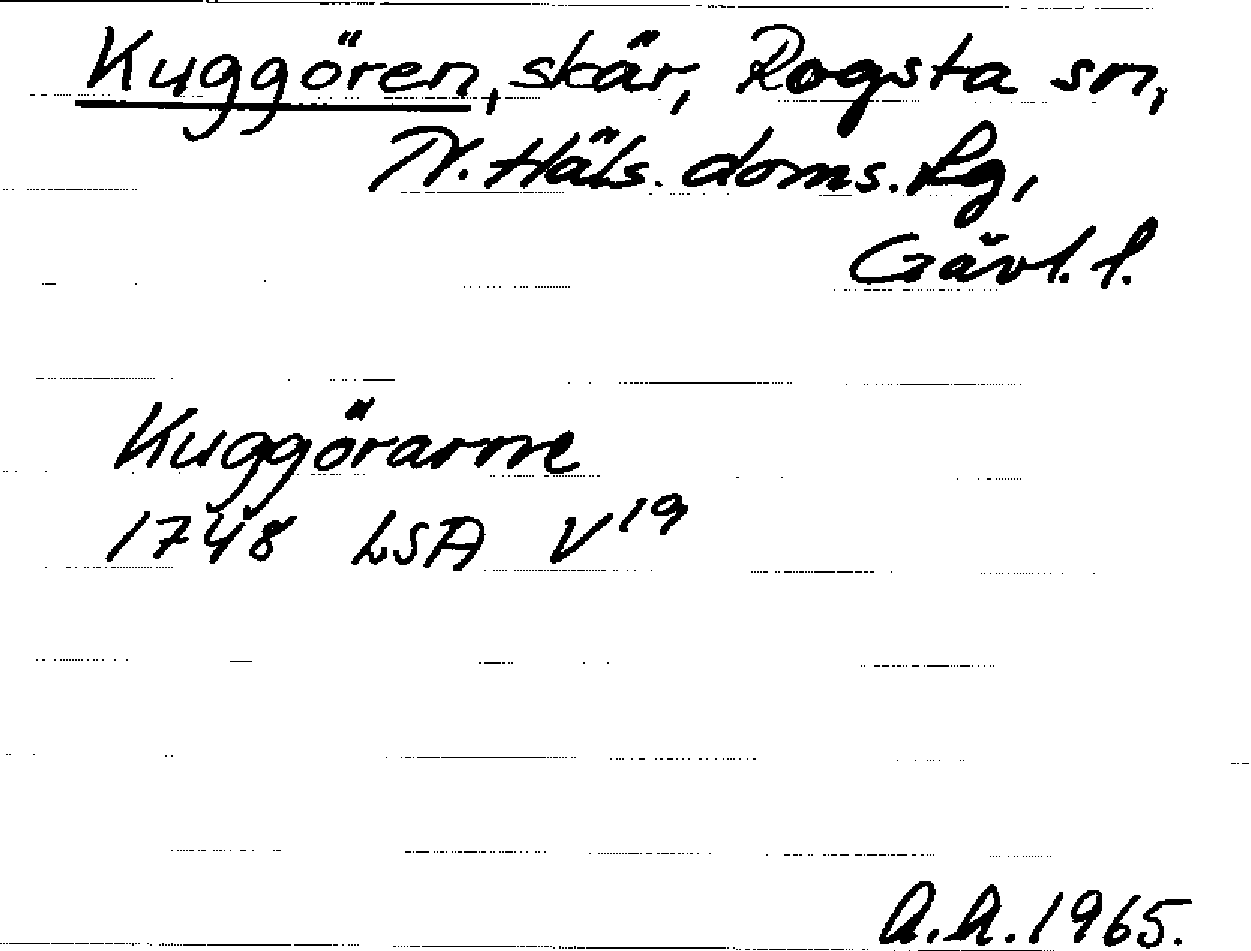 Kuggören, skär, Rogsta sn,
N. Häls. doms. lg,
Gävl. l.
Kuggörarne
1748 LSA V19
A.A. 1965.